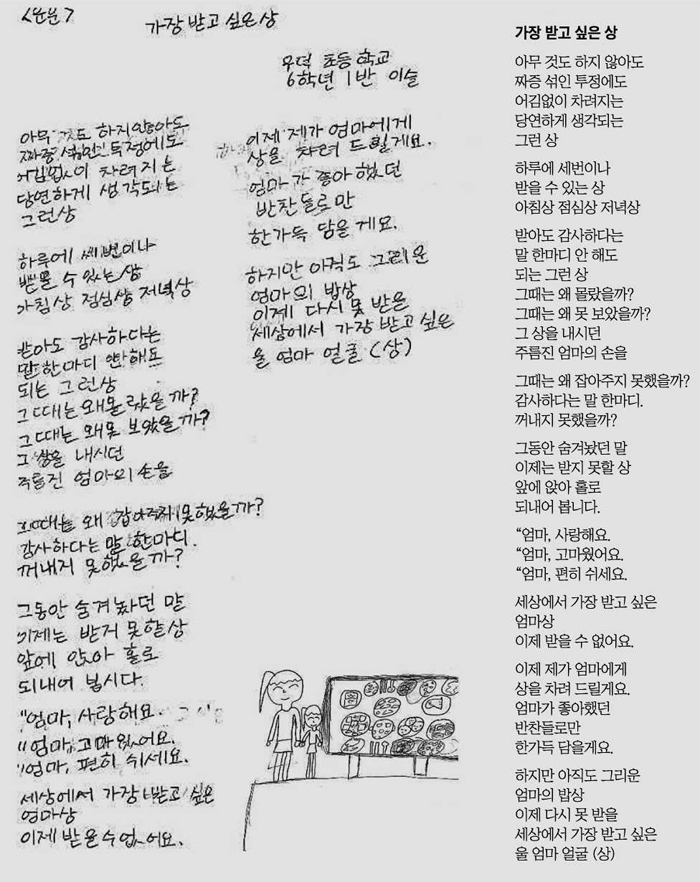 <산문>
가장 받고 싶은 상
우덕 초등학교
6학년 1반 이슬
아무 것도 하지 않아도
짜증 섞인 투정에도
어김없이 차려지는
당연하게 생각되는
그런상
하루에 세번이나
받을 수 있는 상
아침상 점심상 저녁상
받아도 감사하다는
말 한마디 안해도
되는 그런상
그때는 왜 몰랐을까?
그때는 왜 못 보았을까?
그 상을 내시던
주름진 엄마의 손을
그때는 왜 잡아주지 못했을까?
감사하다는 말 한마디.
꺼내지 못했을까?
그동안 숨겨놨던 말
이제는 받지 못할 상
앞에 앉아 홀로
되내어 봅시다.
"엄마, 사랑해요.
"엄마, 고마웠어요.
"엄마, 편히 쉬세요.
세상에서 가장 받고 싶은
엄마상
이제 받을 수 없어요.
이제 제가 엄마에게
상을 차려 드릴게요.
엄마가 좋아했던
반찬들로만
한가득 담을게요.
하지만 아직도 그리운
엄마의 밥상
이제 다시 못 받을
세상에서 가장 받고 싶은
울 엄마 얼굴 (상)
가장 받고 싶은 상
아무 것도 하지 않아도
짜증 섞인 투정에도
어김없이 차려지는
당연하게 생각되는
그런 상
하루에 세번이나
받을 수 있는 상
아침상 점심상 저녁상
받아도 감사하다는
말 한마디 안 해도
되는 그런 상
그때는 왜 몰랐을까?
그때는 왜 못 보았을까?
그 상을 내시던
주름진 엄마의 손을
그때는 왜 잡아주지 못했을까?
감사하다는 말 한마디.
꺼내지 못했을까?
그동안 숨겨놨던 말
이제는 받지 못할 상
앞에 앉아 홀로
되내어 봅니다.
“엄마, 사랑해요.
“엄마, 고마웠어요.
“엄마, 편히 쉬세요.
세상에서 가장 받고 싶은
엄마상
이제 받을 수 없어요.
이제 제가 엄마에게
상을 차려 드릴게요.
엄마가 좋아했던
반찬들로만
한가득 담을게요.
하지만 아직도 그리운
엄마의 밥상
이제 다시 못 받을
세상에서 가장 받고 싶은
울 엄마 얼굴 (상)